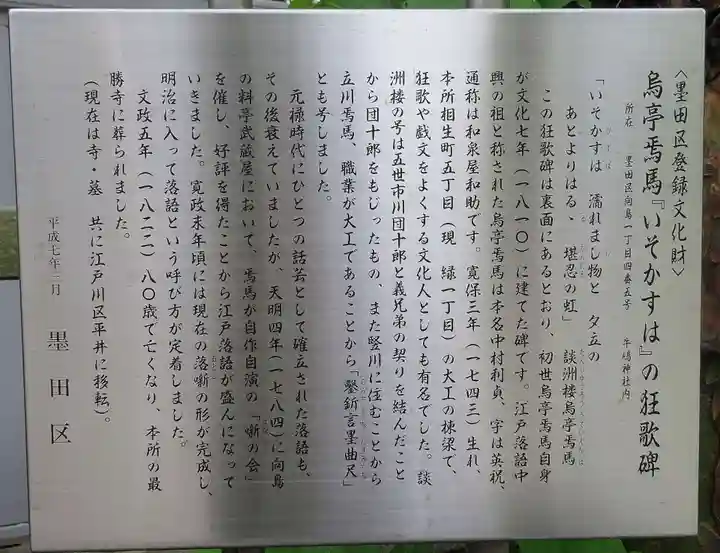 〈墨田区登録文化財〉
烏亭焉馬『いそかすは』の狂歌碑
所在 墨田区向島一丁目四番五号 牛嶋神社内
「いそかすは 濡れまし物と 夕立の
あとよりはる、 堪忍の虹」 談洲楼烏亭焉馬
この狂歌碑は裏面にあるとおり、初世烏亭焉馬自身
が文化七年（一八一〇）に建てた碑です。江戸落語中
興の祖と称された烏亭焉馬は本名中村利貞、字は英祝、
通称は和泉屋和助です。寛保三年（一七四三）生れ、
本所相生町五丁目（現 緑一丁目）の大工の棟梁で、
狂歌や戯文をよくする文化人としても有名でした。談
洲楼の号は五世市川団十郎と義兄弟の契りを結んだこと
から団十郎をもじったもの、また竪川に住むことから
立川焉馬、職業が大工であることから「鑿釿言墨曲尺」
とも号しました。
元禄時代にひとつの話芸として確立された落語も、
その後衰えていましたが、天明四年（一七八四）に向島
の料亭武蔵屋において、焉馬が自作自演の「噺の会」
を催し、好評を得たことから江戸落語が盛んになって
いきました。寛政末年頃には現在の落噺の形が完成し、
明治に入って落語という呼び方が定着しました。
文政五年（一八二二）八〇歳で亡くなり、本所の最
勝寺に葬られました。
（現在は寺・墓 共に江戸川区平井に移転）。
平成七年三月
墨田区